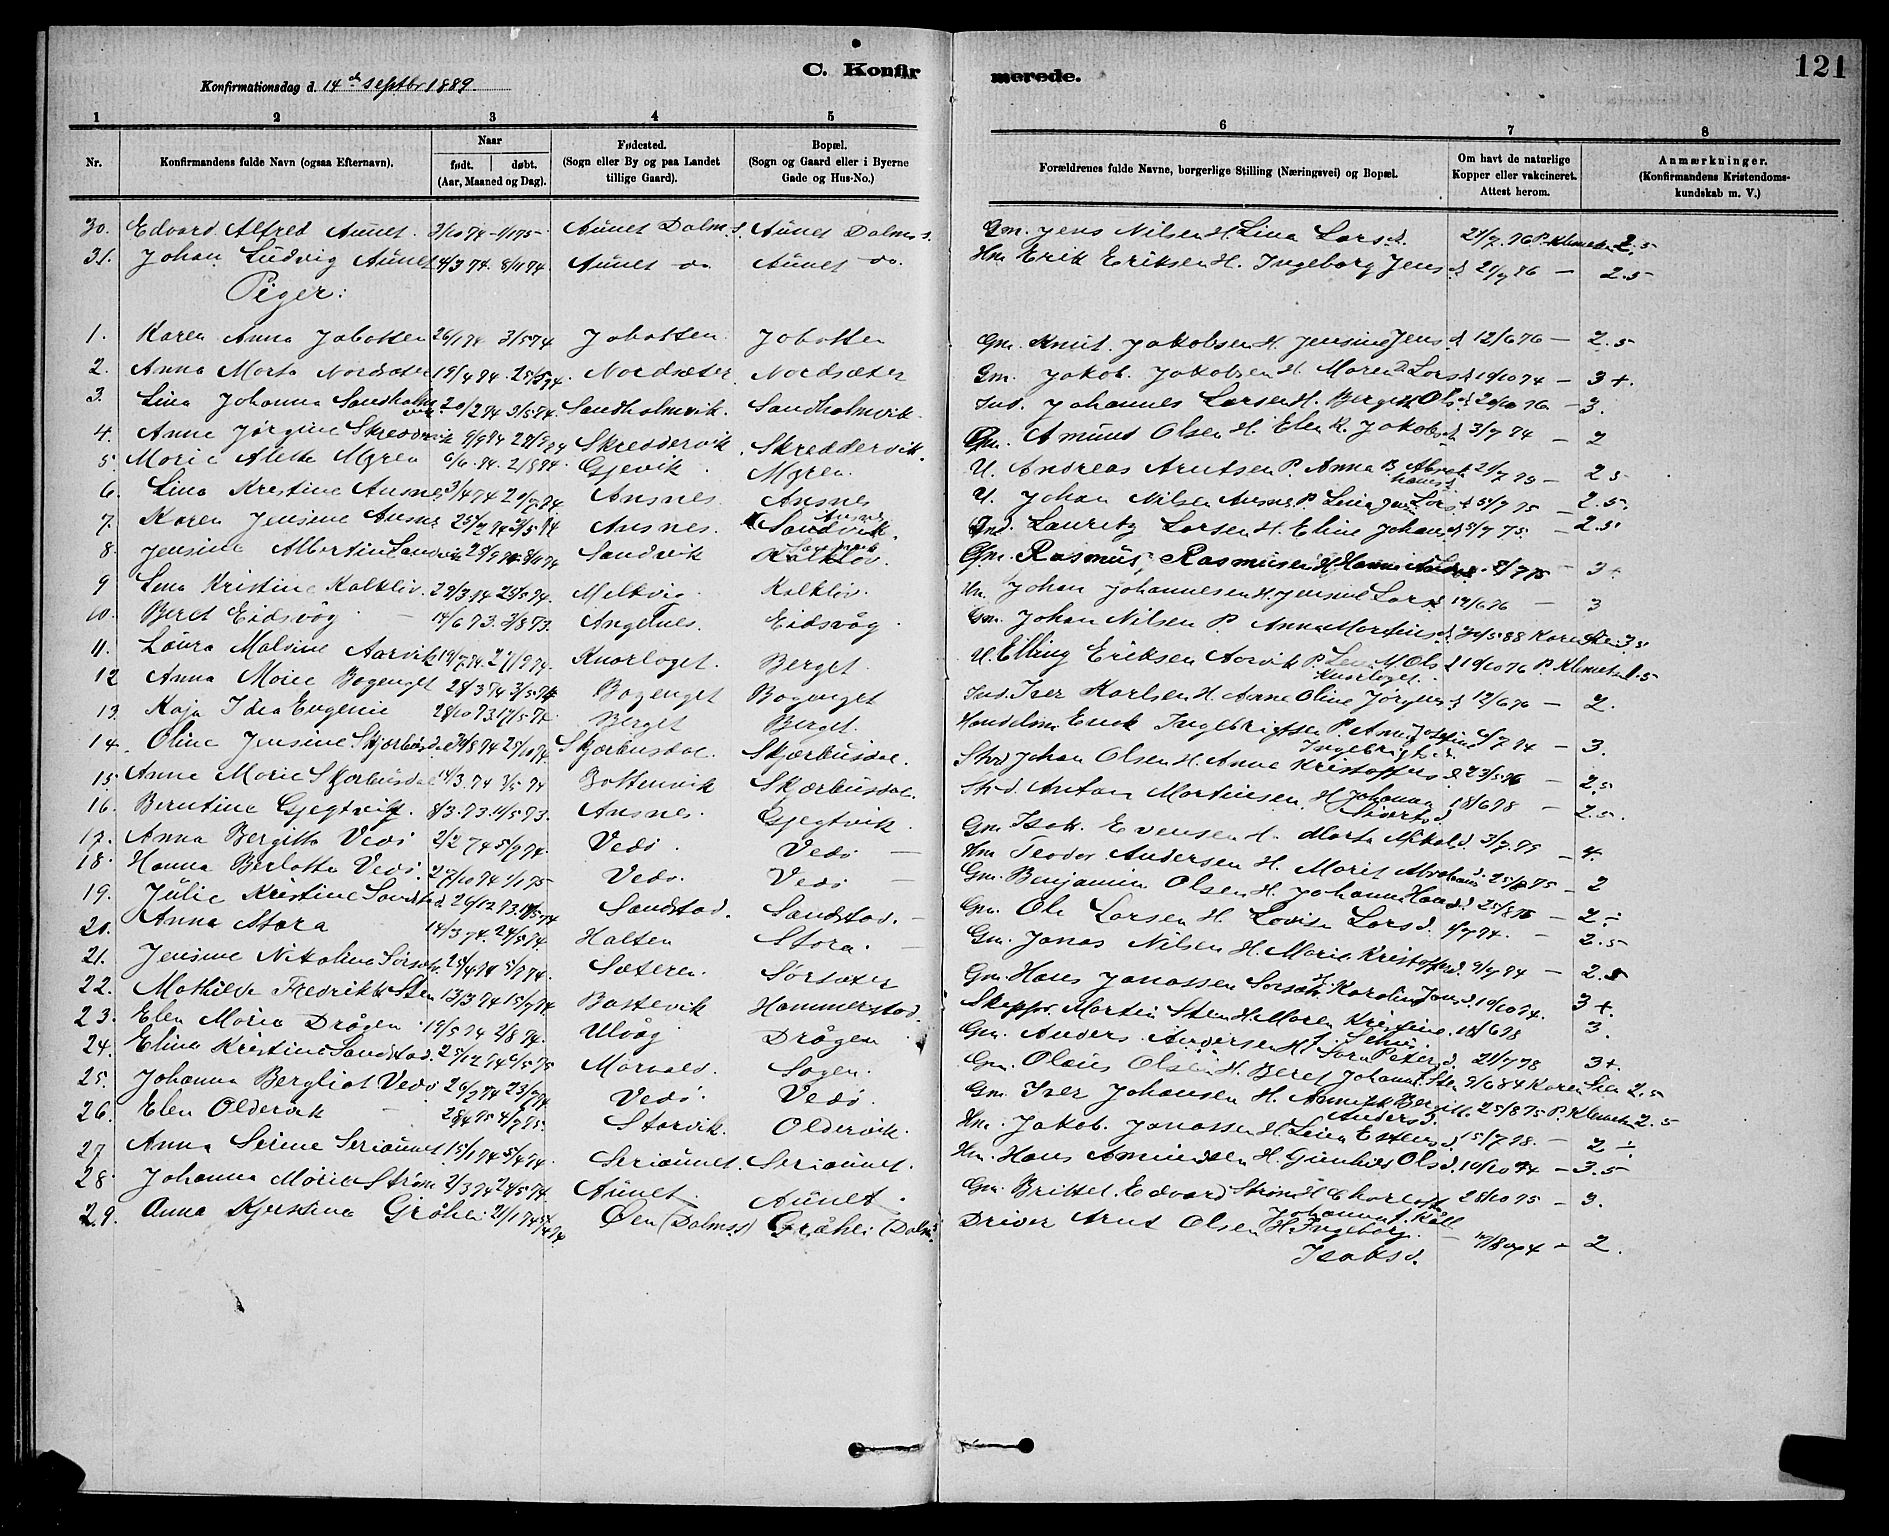 C. Konfirmerede.
121
Konfirmationsdag d. 14de Septbr 1889
1 2 3 4 5 6 7 8
Nr. Konfirmandens fulde Navn (ogsaa Efternavn). Naar født. døbt. (Aar, Maaned og Dag). Fødested. (Sogn eller By og paa Landet tillige Gaard). Bopæl. (Sogn og Gaard eller i Byerne Gade og Hus-No.) Forældrenes fulde Navne, borgerlige Stilling (Næringsvei) og Bopæl. Om havt de naturlige Kopper eller vakcineret. Attest herom. Anmærkninger. (Konfirmandens Kristendomskundskab m. V.)
30. Edvard Alfred Aunet 2/10 74 - 1/1 75 Aunet Dolm.s. Aunet Dolm.s. Gm. Jens Nilsen H. Lina Larsd. 21/7.76 P. Klemets. 2.5
31. Johan Ludvig Aunet 14/3 74. 8/11 74 Aunet do. Aunet do. Hm Erik Eriksen H. Ingeborg Jensd. 21/7 76 — 2.5
Piger:
1. Karen Anna Jøbotten 26/1 74 3/5 74 Jøbotten Jøbotten Gm. Knut Jakobsen H. Jensine Jensd. 12/6 76 — 2.5
2. Anna Marta Nordsæter 19/4 74. 25/5 74. Nordsæter. Nordsæter Gm. Jakob Jakobsen H. Maren Larsd. 10/10 74 — 3+.
3. Lina Johanna Sandholmvik 20/2 74 3/5 74. Sandholmvik. Sandholmvik. Ind. Johannes Larsen H. Bergith Olsd. 20/10 76 — 3.
4. Anne Jørgine Skreddervik Skreddervik. Skreddervik. Gm. Amund Olsen H. Elen K. Jakobsd. 3/7 74 — 2
5. Marie Aletta Myren 6/6 74. 2/8 74. Gjevik. Myren. U. Andreas Arntsen P. Anna B. Abrahamsd. — 2.5
6. Lina Kristine Ansnes 3/4 74 Ansnes. Ansnes U. Johan Nilsen Ansnes P. Lina — 2.5.
7. Karen Jensine Ansnes Ansnes. Ansnes Sandvik. Ind. Lauritz Larsen H. Eline Johansd. 5/7 75 — 2.5
8. Jensine Albertine Sandvik Sandvik Sandvik Kalkløv. Gm. Rasmus Rasmusen H. Hanna — 3+
9 Lina Kristine Kalkløv. 29/3.74 25/5 74. Melkvig. Kalkløv. Hm. Johan Johannesen H. Jensine Larsd. 14/6 76 — 3
10. Beret Eidsvåg — 14/6 73. 3/8 73. Angelnes. Eidsvåg. Gm. Johan Nilsen P. Anna Martinsd. 24/5 88 Karen Sten 3.5
11. Laura Malvine Aarvik 19/7 74. 27/9 74. Knarlaget. Berget. U. Elling Eriksen Aarvik P. Lena M. Olsd. Knarlaget. 10/10 76 P. Klemets. 2.5
12 Anna Marie Bogenget 24/3 74 3/5 74 Bogenget Bogenget Ind. Iver Karlsen H. Anne Oline Jørgensd. 12/6 76 — 2.
13. Kaja Idea Eugenie 28/10 73. 17/5 74. Berget Berget. Handelsm. Enok Ingebrigtsen P. Anne Josefine Ingebrigtsd. 4/7 74 — 3.
14. Oline Jensine Skjærbusdal Skjærbusdal. Skjærbusdal. Strd. Johan Olsen H. Anne Kristoffersd. 23/5 76 — 2.5
15. Anne Marie Skjærbusdal 14/3.74 3/5 74 Bottenvik Skjærbusdal. Strd. Anton Martinsen H. Johanna Sivertsd. 18/6 78 — 2.5.
16. Berntine Gjegtvik. 8/3.73. 11/5 73. Ansnes. Gjegtvik. Gm Isak Evensen H. Marta Mikalsd. 3/7.79 — 4.
17. Anna Bergitta Vedø 2/2 74 5/7 74. Vedø. Vedø — Hm Teodor Andersen H. Marit Abrahamsd. 25/8 75 — 2
18. Hanna Berlotte Vedø. 27/10 74 1/1 75 Vedø. Vedø — Gm. Benjamin Olsen H. Johanna Hansd. 25/8 75 — 2 ÷
19. Julie Kristine Sandstad 26/12 73. Sandstad. Sandstad. — Gm. Ole Larsen H. Lovise Larsd. 4/7 74. — 2.5
20. Anna Støra 14/3 74. 24/5 74 Halten Støra. — Gm. Jonas Nilsen H. Marie Kristoffersd. 9/7 74 — 2.5
21. Jensine Nikoline Sørsæter 25/4 74 5/7 74. Sæteren. Sørsæter Gm. Hans Jonassen Sørsæter H. Karoline Jonsd. 10/10 74. 3+.
22. Mathilde Fredrikke Sten 13/3 74 15/7 74 Bastevik Hammerstad. Skipper Martin Sten H. Maren Kristine f. Sehus. 18/6 78 3.
23. Elen Marie Drågen 19/5 74 2/8 74. Ulvåg Drågen. Gm. Anders Andersen H. Sara Petersd. 21/7 78 3+.
24. Elina Kristine Sandstad. 25/12 74 Morvald. Søgen. Gm. Olaus Olsen H. Beret Johanna f. Sten 9/6 84 Karen Sten 2.5
25. Johanna Bergliot Vedø 26/2 74 23/7 74 Vedø. Vedø. Gm. Iver Johansen H. Annikk Bergitte Andersd. 25/8 75 P. Klemets. 2.5
26. Elen Oldervik — Storvik. Oldervik. Hm. Jakob Jonassen H. Lina Estensd. 15/7 78. — 2 ÷
27 Anna Serine Seriaunet 15/1 74 5/4 74. Seriaunet. Seriaunet. Hm. Hans Amundsen H. Gunhild Olsd. 10/10 74 — 3.5
28. Johanna Marie Strøm 2/3 74 24/5 74. Aunet. Aunet. Gm. Brittel Edvard Strøm H. Charlotte Johanna f. Köll 28/10 75 — 3.
29. Anna Kjerstina Gråhei 21/1 74 Øen (Dolmsø) Gråhei (Dolms. Driver Arnt Olsen H. Ingeborg Isaksd. — 2.